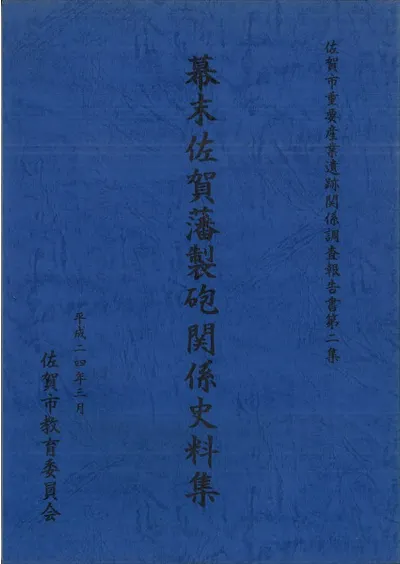 佐賀市重要産業遺跡関係調査報告書第二集
幕末佐賀藩製砲関係史料集
平成二四年三月
佐賀市教育委員会